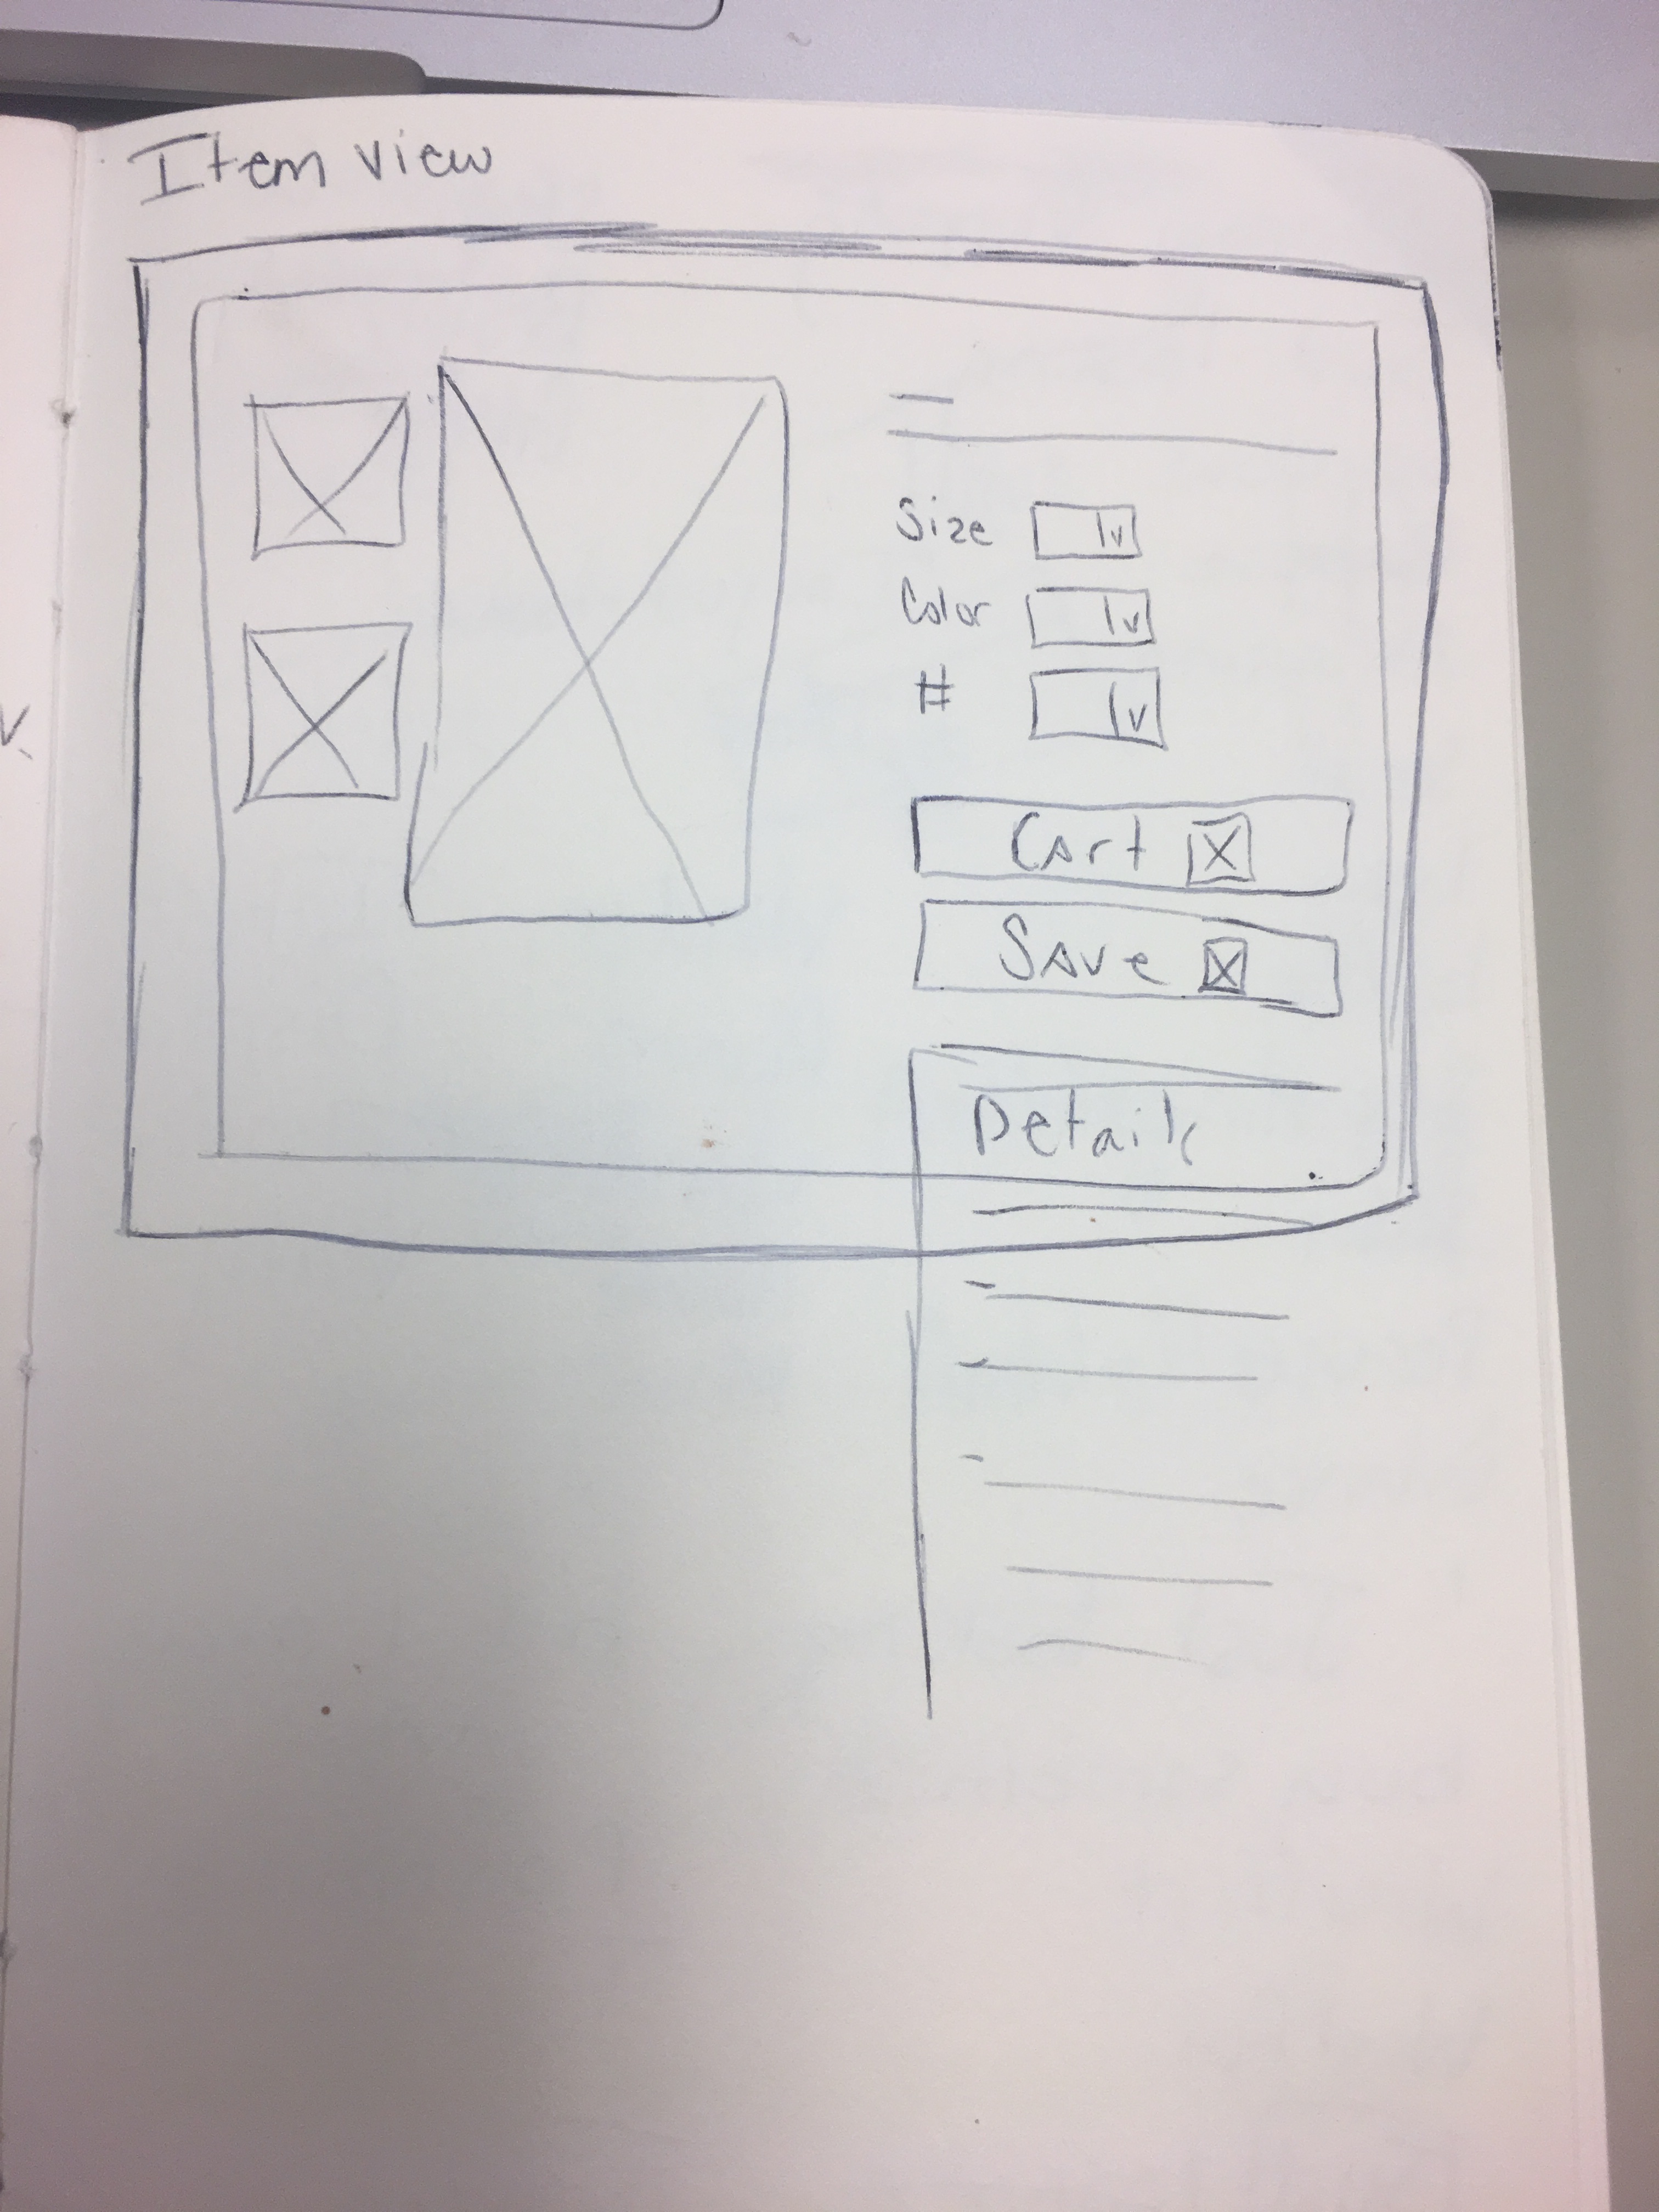 Item view
Size
Color
#
Cart
Save
Details
v